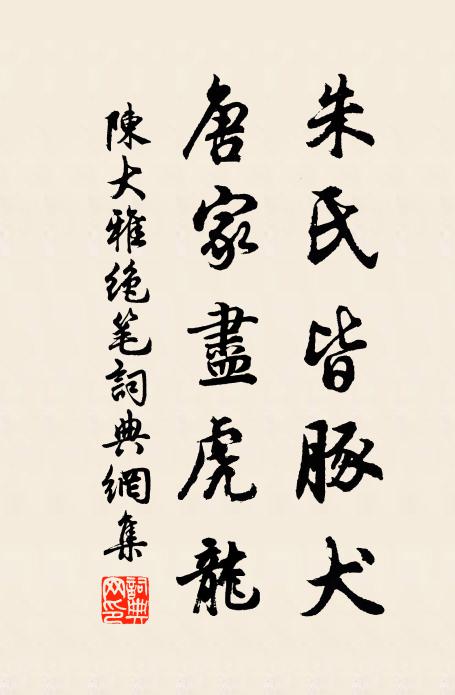 朱氏皆豚犬
唐家盡虎龍
陳大雅绝笔詞典網集
詞典网印